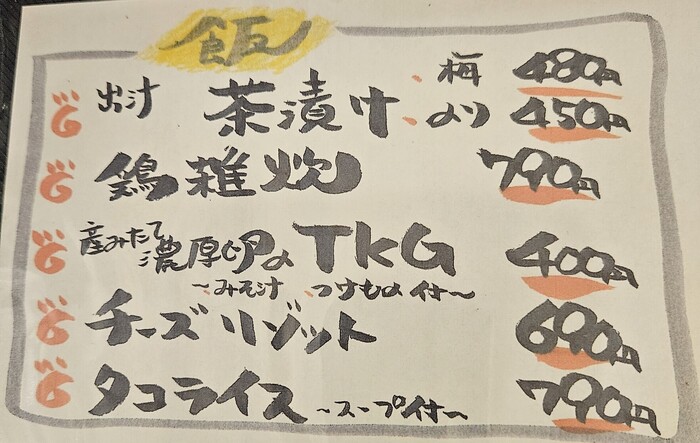 飯
出汁 茶漬け 梅 480円
のり 450円
鶏雑炊 790円
産みたて濃厚卵のTKG 400円
~みそ汁、つけもの付~
チーズリゾット 690円
タコライス ~スープ付~ 790円